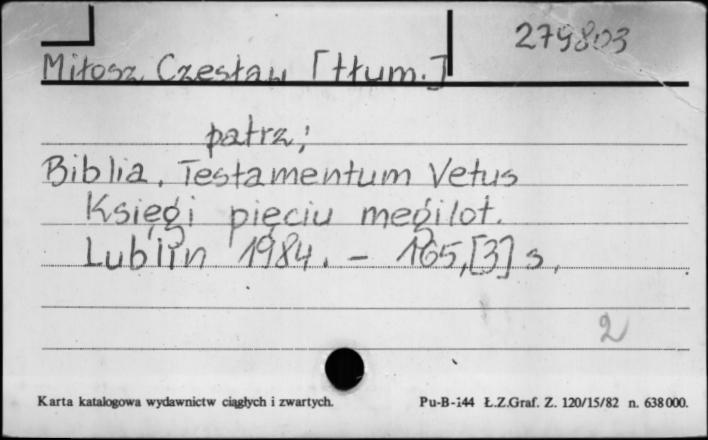 279803
Miłosz Czesław [tłum.]
patrz;
Biblia. Testamentum Vetus
Księgi pięciu megilot.
Lublin 1984. - 165,[3] s.
2
Karta katalogowa wydawnictw ciągłych i zwartych. Pu-B-144 Ł.Z.Graf. Z. 120/15/82 n. 638000.